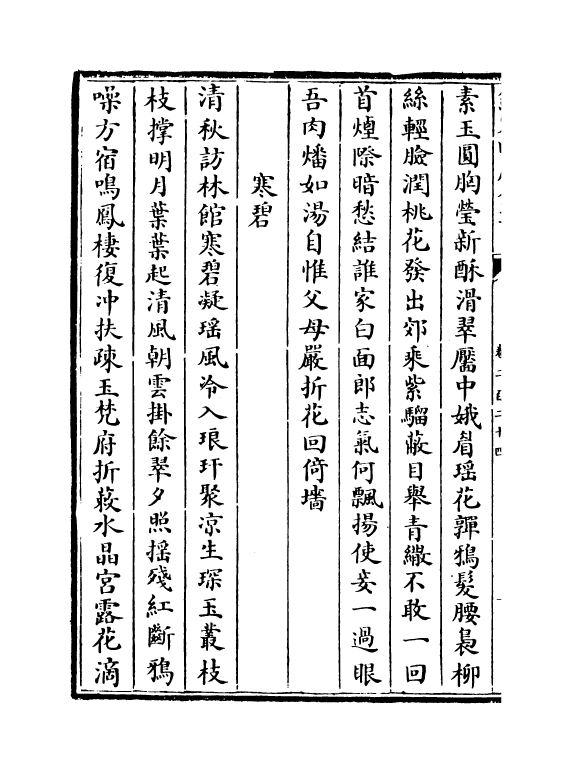 素玉圓胸瑩新酥滑翠靨中娥眉瑶花嚲鴉髮腰裊柳
絲輕臉潤桃花發出郊乘紫騮蔽目舉青繖不敢一回
首煙際暗愁結誰家白面郎志氣何飄揚使妾一過眼
吾肉燔如湯自惟父母嚴折花回倚墻
寒碧
清秋訪林館寒碧凝瑶風冷入琅玕聚凉生琛玉叢枝
枝撑明月葉葉起清風朝雲掛餘翠夕照揺殘紅斷鴉
噪方宿鳴鳳棲復冲扶疎玉梵府折蔌水晶宫露花滴
卷二百二十四